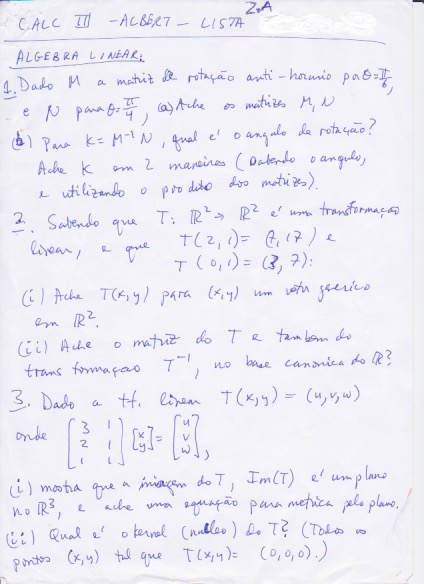 2.A
CALC III - ALBERT - LISTA
ALGEBRA LINEAR:
1. Dado M a matriz de rotação anti-horario por θ=π/6,
e N para θ=π/4, (a) Ache os matrizes M, N
(b) Para K = M⁻¹N, qual e' o angulo de rotação?
Ache K em 2 maneiras (sabendo o angulo,
e utilizando o produto dos matrizes).
2. Sabendo que T: ℝ² → ℝ² e' uma transformação
linear, e que T(2,1) = (7,17) e
T(0,1) = (3,7):
(i) Ache T(x,y) para (x,y) um vetor generico
em ℝ².
(ii) Ache o matriz do T e tambem do
transformaçao T⁻¹, no base canonica do ℝ²
3. Dado a tf. linear T(x,y) = (u,v,w)
onde [3 1; 2 1; 1 1] [x; y] = [u; v; w],
(i) mostra que a imagem do T, Im(T) e' um plano
no ℝ³, e ache uma equação parametrica pelo plano.
(ii) Qual e' o kernel (nucleo) do T? (Todos os
pontos (x,y) tal que T(x,y) = (0,0,0).)